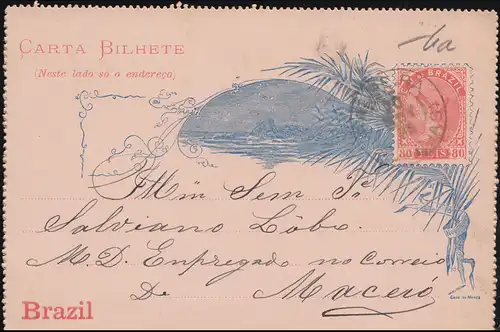 CARTA BILHETE
(Neste lado só o endereço)
BRAZIL
80 REIS 80
Illm Sem Sr
Salviano Lôbo.
M. D. Empregado no Correio
De Maceió
Casa da Moeda
Brazil